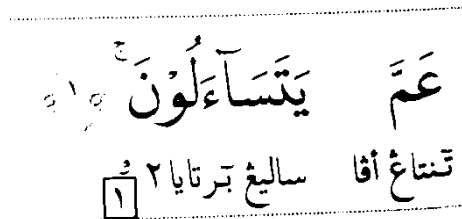 عَمَّ يَتَسَآءَلُوْنَ ۚ ١
تنتاڠ أڤا ساليڠ برتايا ٢ ١